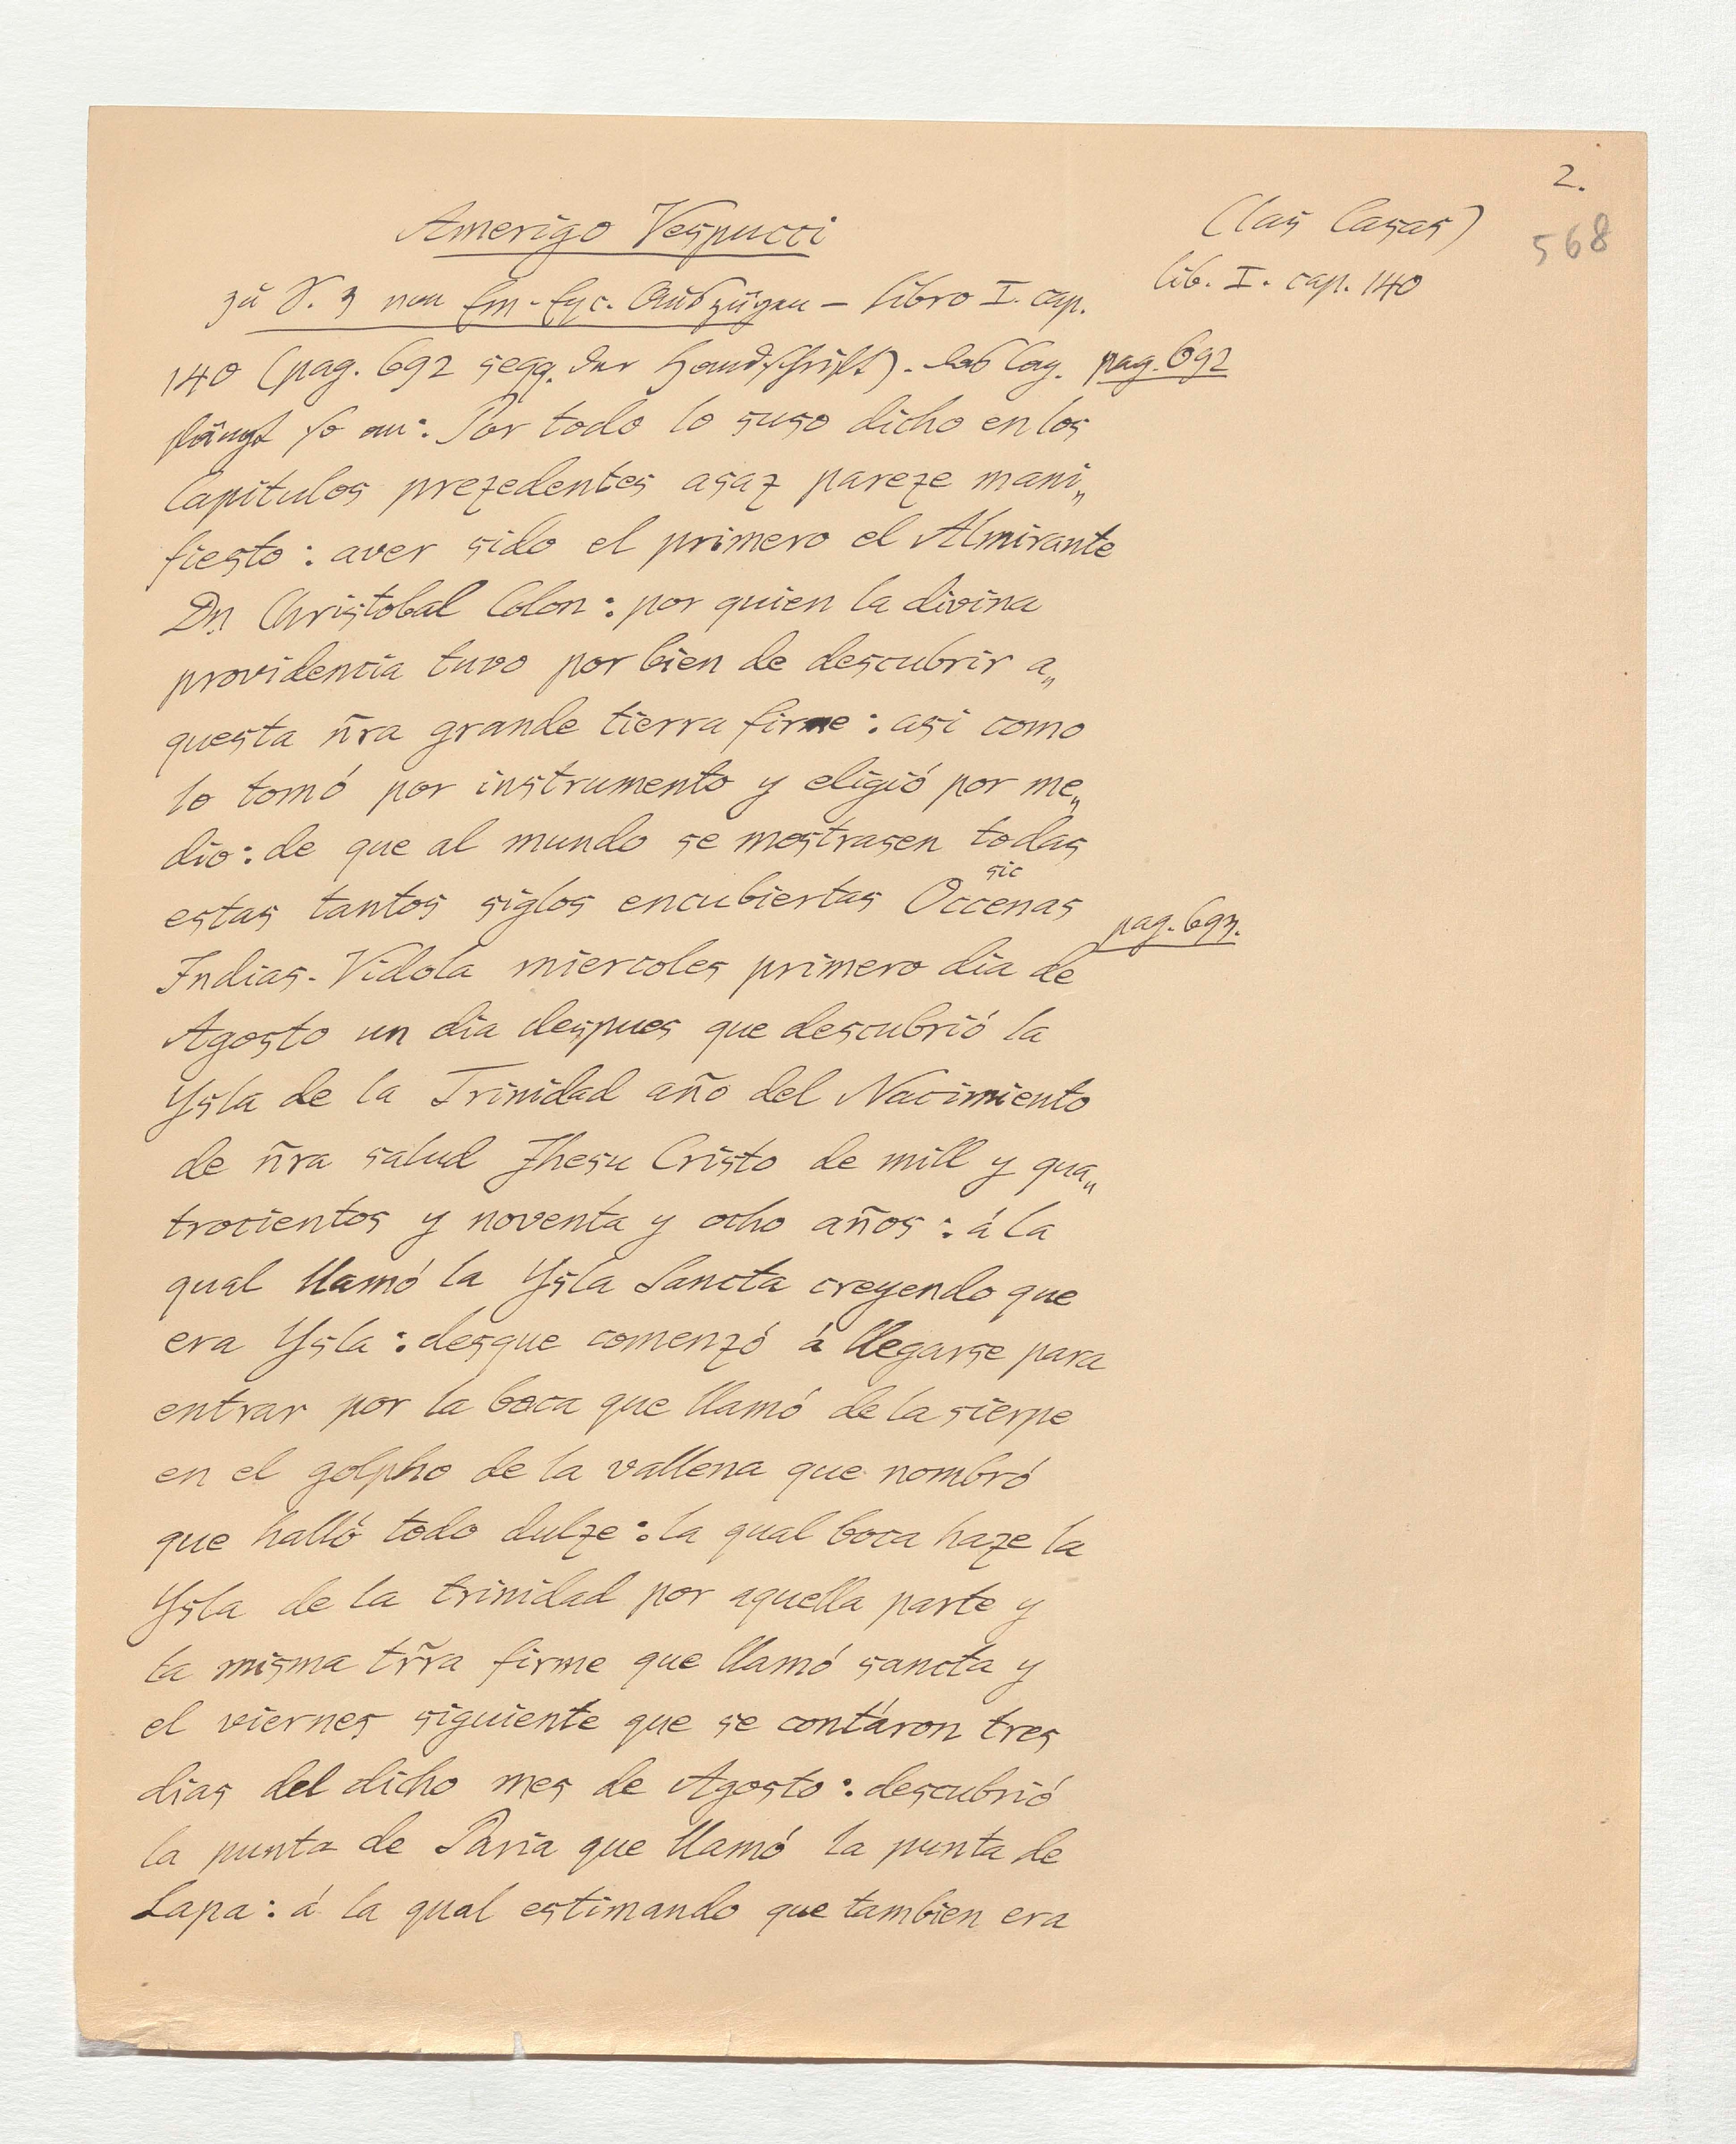 2.
568
Amerigo Vespucci
(las Casas)
lib. I. cap. 140
zu S. 3 von Em- Exc. Auszügen – libro I. cap.
140 (pag. 692 seqq. der Handschrift). das Cap.
pag. 692
fängt so an: Por todo lo suso dicho en los
Capitulos prezedentes asaz pareze mani„
fiesto: aver sido el primero el Almirante
Dn. Christobal Colon: por quien la divina
providencia tuvo por bien de descubrir a„
questa ñra grande tierra firme: asi como
lo tomó por instrumento y eligió por me„
dio: de que al mundo se mostrasen todas
sic
estas tantos siglos encubiertas Occenas
pag. 693.
Indias. Vidola miercoles primero dia de
Agosto un dia despues que descubrió la
Ysla de la Trinidad año del Nacimiento
de ñra salud Jhesu Cristo de mill y qua„
trocientos y noventa y ocho años: á la
qual llamó la Ysla Sancta creyendo que
era Ysla: desque comenzó á llegarse para
entrar por la boca que llamó de la sierpe
en el golpho de la vallena que nombró
que halló todo dulze: la qual boca haze la
Ysla de la trinidad por aquella parte y
la misma trr̃a firme que llamó sancta y
el viernes siguiente que se contáron tres
dias del dicho mes de Agosto: descubrió
la punta de Paria que llamó la punta de
Lapa: á la qual estimando que tambien era